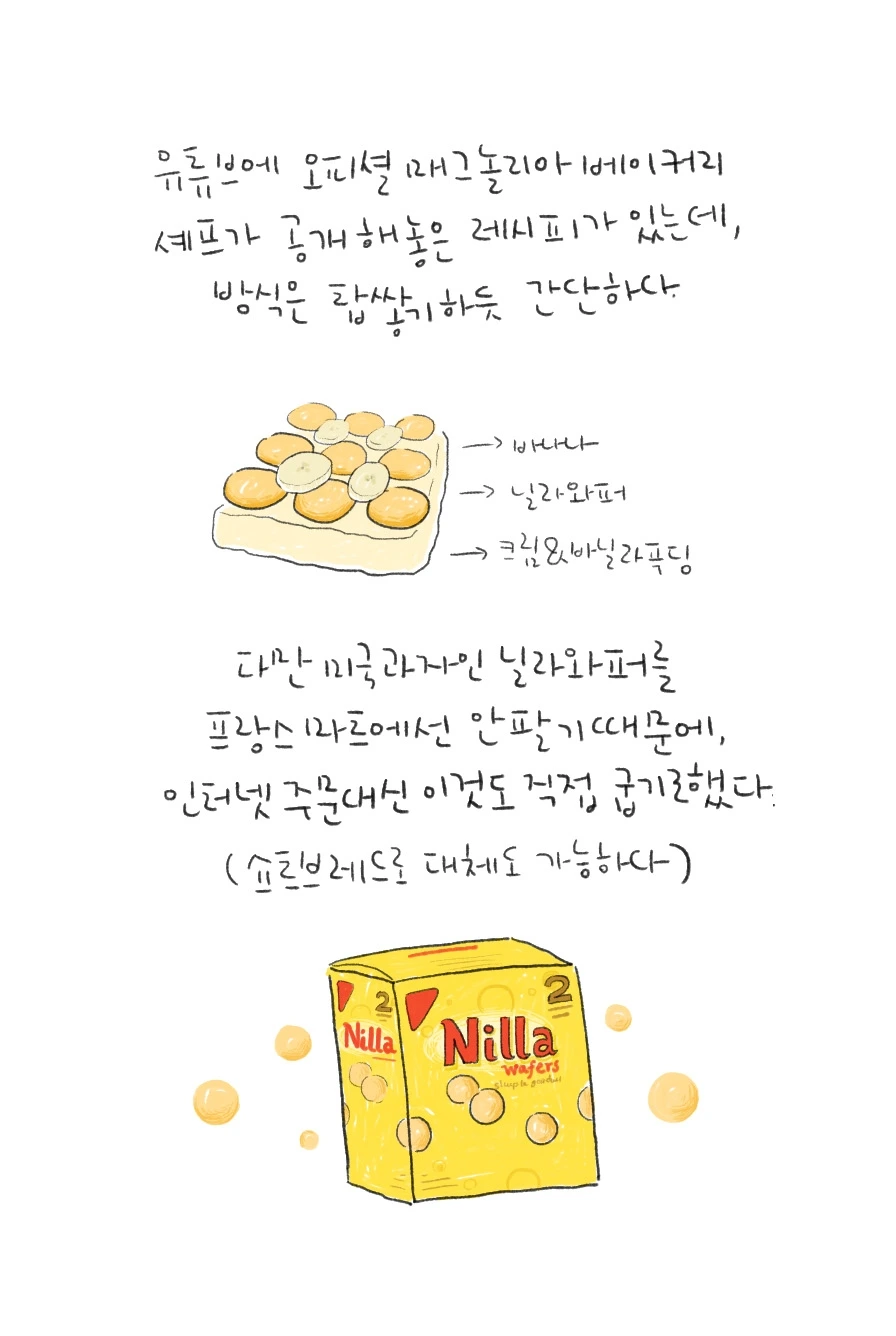 유튜브에 오피셜 매그놀리아 베이커리
셰프가 공개해놓은 레시피가 있는데,
방식은 탑쌓기하듯 간단하다.
→ 바나나
→ 닐라와퍼
→ 크림&바닐라푸딩
다만 미국과자인 닐라와퍼를
프랑스마트에선 안팔기때문에,
인터넷 주문대신 이것도 직접 굽기로했다.
(쇼트브레드로 대체도 가능하다)
2
Nilla
2
Nilla
wafers